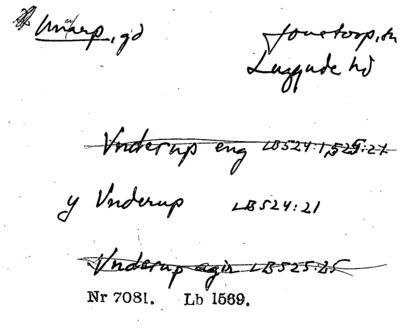 Unnarp, gd
Jonstorp, sn
Luggude hd
Vnderup eng LB524:1, 525:21
y Vnderup LB524:21
Vnderup agir LB525:25
Nr 7081. Lb 1569.